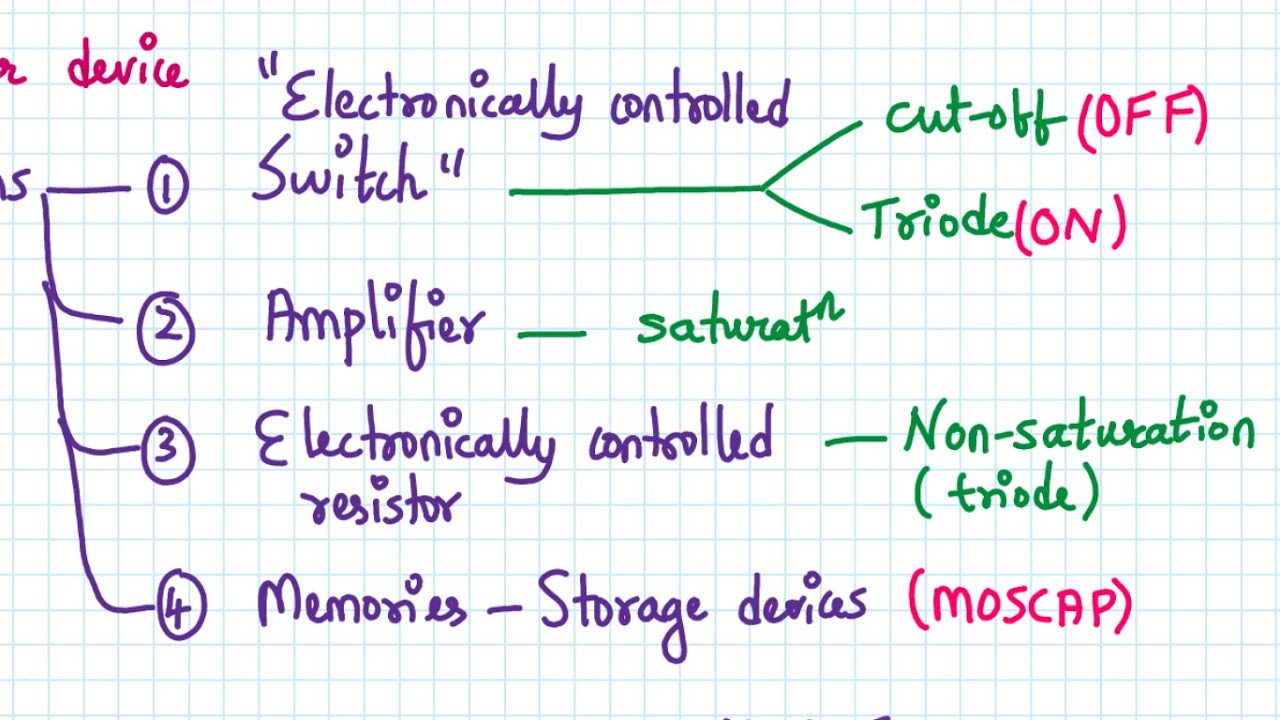 device
"Electronically controlled
Switch"
cut-off (OFF)
Triode (ON)
① 
② Amplifier — saturatⁿ
③ Electronically controlled — Non-saturation
resistor (triode)
④ Memories – Storage devices (MOSCAP)